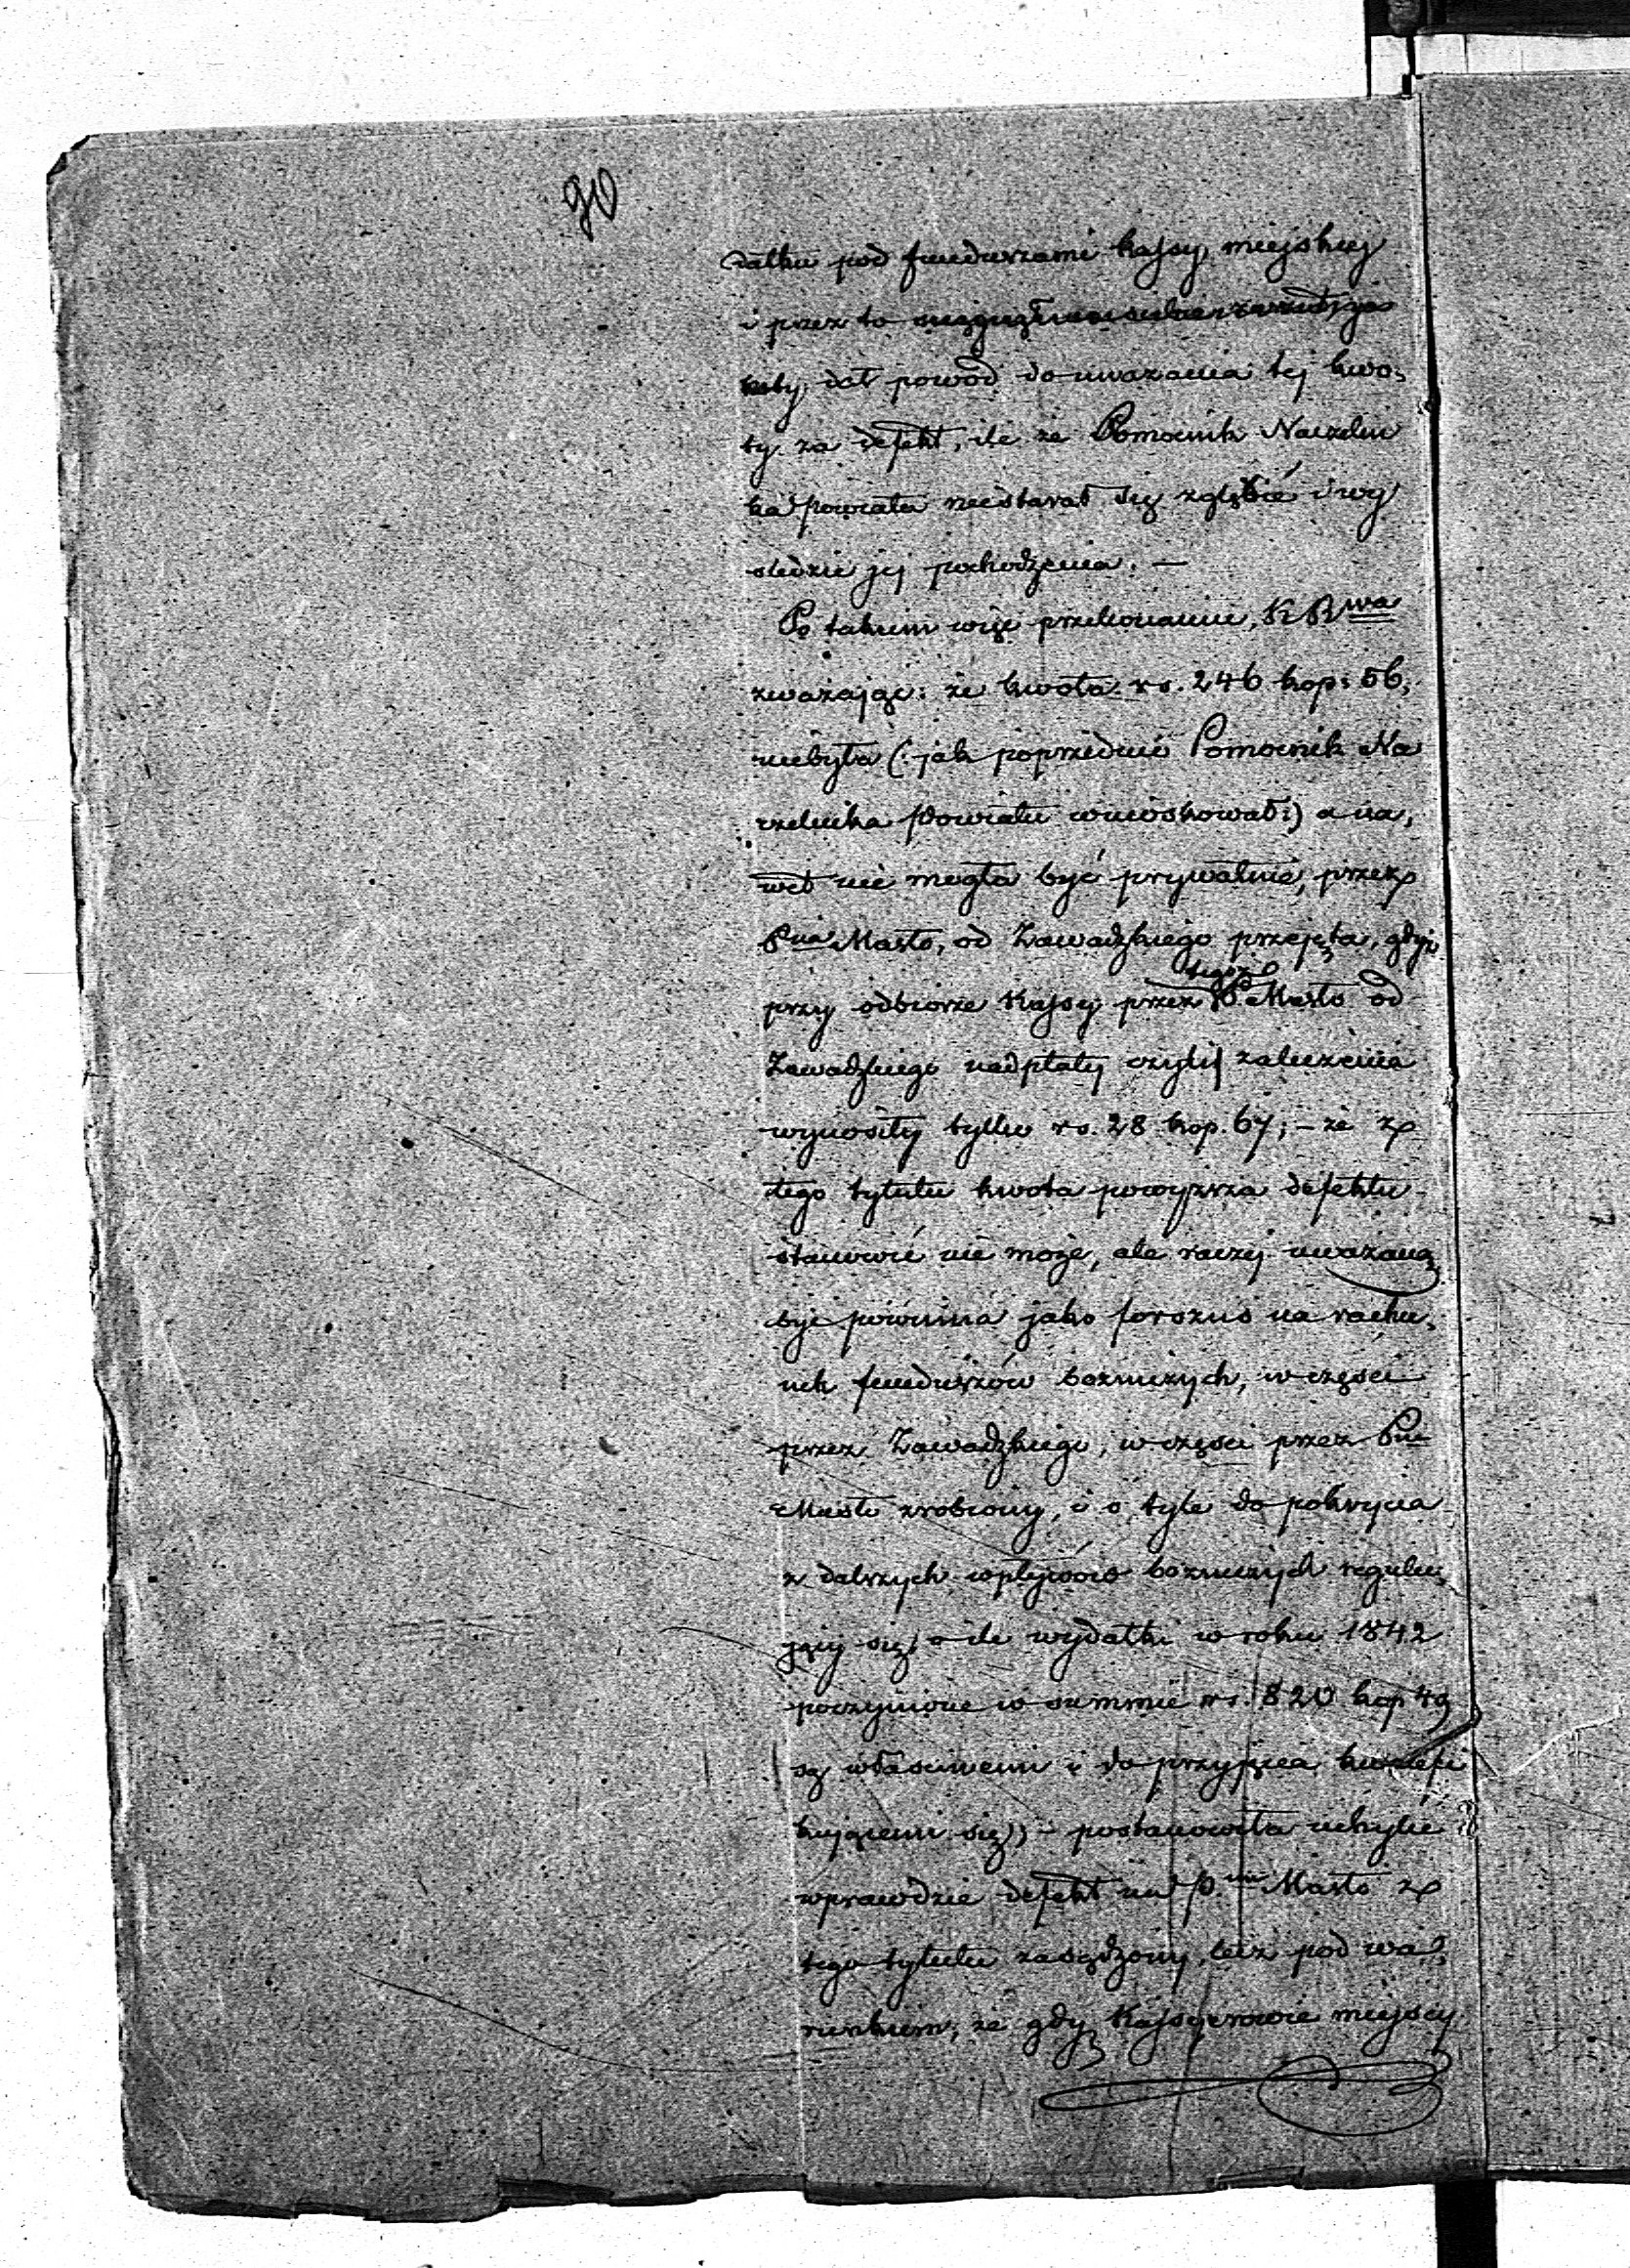 90
datku pod funduszami kassy miejskiej
i przez to
dał powód do uważania tej kwo-
ty za defekt, ile że Pomocnik Naczelni
ka Powiatu niestarał się zgłębić i wy
śledzić jej pochodzenia. —
Po takiem więc przekonaniu, K R wa
zważając: że kwota rs. 246 kop: 56,
niebyła (: jak poprzednio Pomocnik Na
czelnika Powiatu wnioskował :) a na-
wet nie mogła być prywatnie, przez
Masło, od Zawadzkiego przejęta, gdyż
przy odbiorze kassy przez tegoż P Masło od
Zawadzkiego nadpłaty czyli zaliczenia
wynosiły tylko rs. 28 kop. 67; – że z
tego tytułu kwota powyższa defektu
stanowić nie może, ale raczej uważaną
być powinna jako forszus na rachu-
nek funduszów bóżniczych, w części
przez Zawadzkiego, w części przez
Masło zrobiony, i o tyle do pokrycia
z dalszych wpływów bóżniczych regulu-
jący się, o ile wydatki w roku 1842
poczynione w summie rs. 820 kop 49
są właściwemi i do przyjęcia kwalifi
kującemi się; – postanowiła uchylić
wprawdzie defekt na P. Masło z
tego tytułu zasądzony, lecz pod wa-
runkiem, że gdy Kassyerowie miejscy